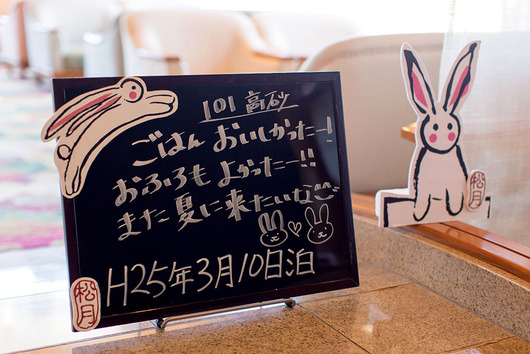 101 高砂
ごはん おいしかったー!
おふろも よかったー!!
また 夏に来たいな
H25年3月10日泊
松月
松月